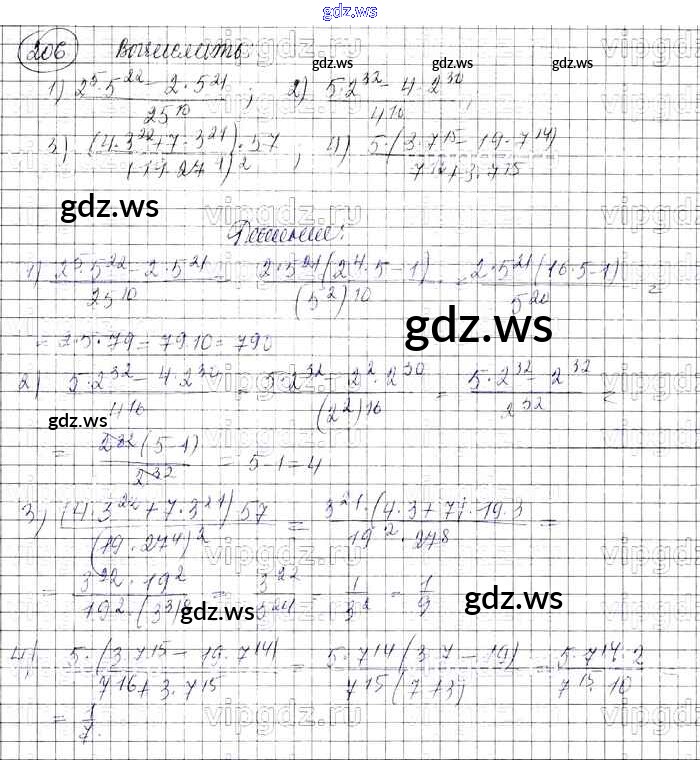 gdz.ws
206 Вычислить
1) 2⁵·5²² − 2·5²¹ / 25¹⁰ ; 2) 5·2³² − 4·2³⁰ / 4¹⁶ ;
3) (4·3²²+7·3²¹)·57 / (19·27⁴)² ; 4) 5·(3·7¹⁵ − 19·7¹⁴) / 7¹⁶+3·7¹⁵
gdz.ws
Решение:
1) 2⁵5²² − 2·5²¹ / 25¹⁰ = 2·5²¹(2⁴·5 − 1) / (5²)¹⁰ = 2·5²¹(16·5−1) / 5²⁰ =
= 2·5·79 = 79·10 = 790
2) 5·2³² − 4·2³⁰ / 4¹⁶ = 5·2³² − 2²·2³⁰ / (2²)¹⁶ = 5·2³² − 2³² / 2³² =
= 2³²(5−1) / 2³² = 5−1 = 4
3) (4·3²²+7·3²¹)57 / (19·27⁴)² = 3²¹·(4·3+7)·19·3 / 19²·27⁸ =
= 3²²·19² / 19²·(3³)⁸ = 3²² / 3²⁴ = 1 / 3² = 1 / 9
4) 5·(3·7¹⁵ − 19·7¹⁴) / 7¹⁶+3·7¹⁵ = 5·7¹⁴(3·7 − 19) / 7¹⁵(7+3) = 5·7¹⁴·2 / 7¹⁵·10
= 1 / 7.